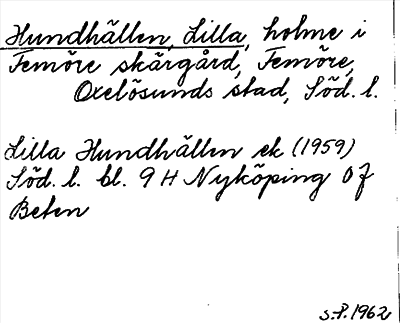 Hundhällen, Lilla, holme i
Femöre skärgård, Femöre,
Oxelösunds stad, Söd. l.
Lilla Hundhällen ek (1959)
Söd. l. bl. 9 H Nyköping 0 f
Beten
S.P. 1962